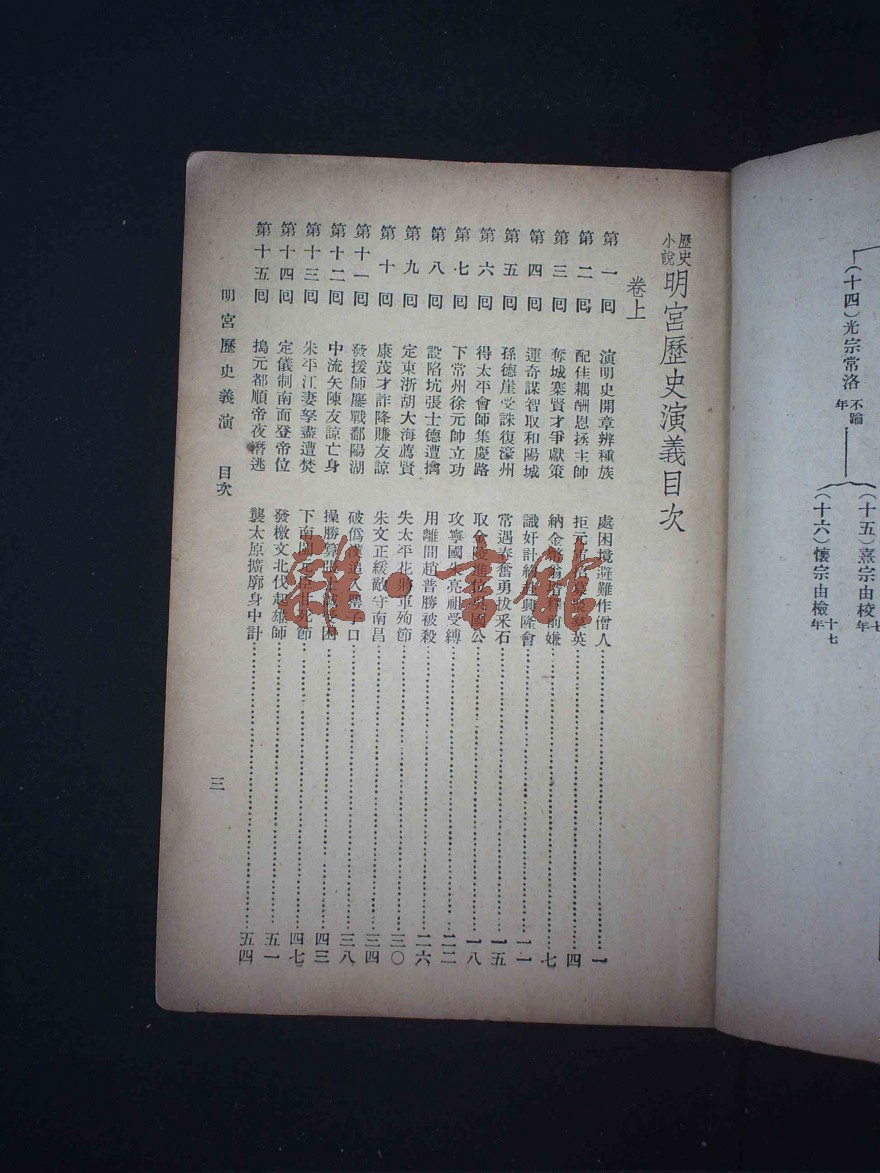 (十五)熹宗由校 七年
(十四)光宗常洛 不踰年
(十六)懷宗由檢 十七年
歷史小說 明宮歷史演義目次
卷上
第一回 演明史開章辨種族 處困境避難作僧人 一
第二回 配佳耦酬恩拯主帥 拒元 英 四
第三回 奪城寨賢才爭獻策 納金 前嫌 七
第四回 運奇謀智取和陽城 識奸計 興隆會 一一
第五回 孫德崖受誅復濠州 常遇春奮勇拔采石 一五
第六回 得太平會師集慶路 取金陵進位吳國公 一八
第七回 下常州徐元帥立功 攻寧國朱亮祖受縛 二二
第八回 設陷坑張士德遭擒 用離間趙普勝被殺 二六
第九回 定東浙胡大海薦賢 失太平花將軍殉節 三〇
第十回 康茂才詐降賺友諒 朱文正緩敵守南昌 三四
第十一回 發援師鏖戰鄱陽湖 破偽漢追入罌子口 三八
第十二回 中流矢陳友諒亡身 操勝算張士誠被困 四三
第十三回 朱平江妻孥盡遭焚 下南閩元臣甘死節 四七
第十四回 定儀制南面登帝位 發檄文北伐起雄師 五一
第十五回 搗元都順帝夜潛逃 襲太原擴廓身中計 五四
明宮歷史義演 目次 三
雜·書館